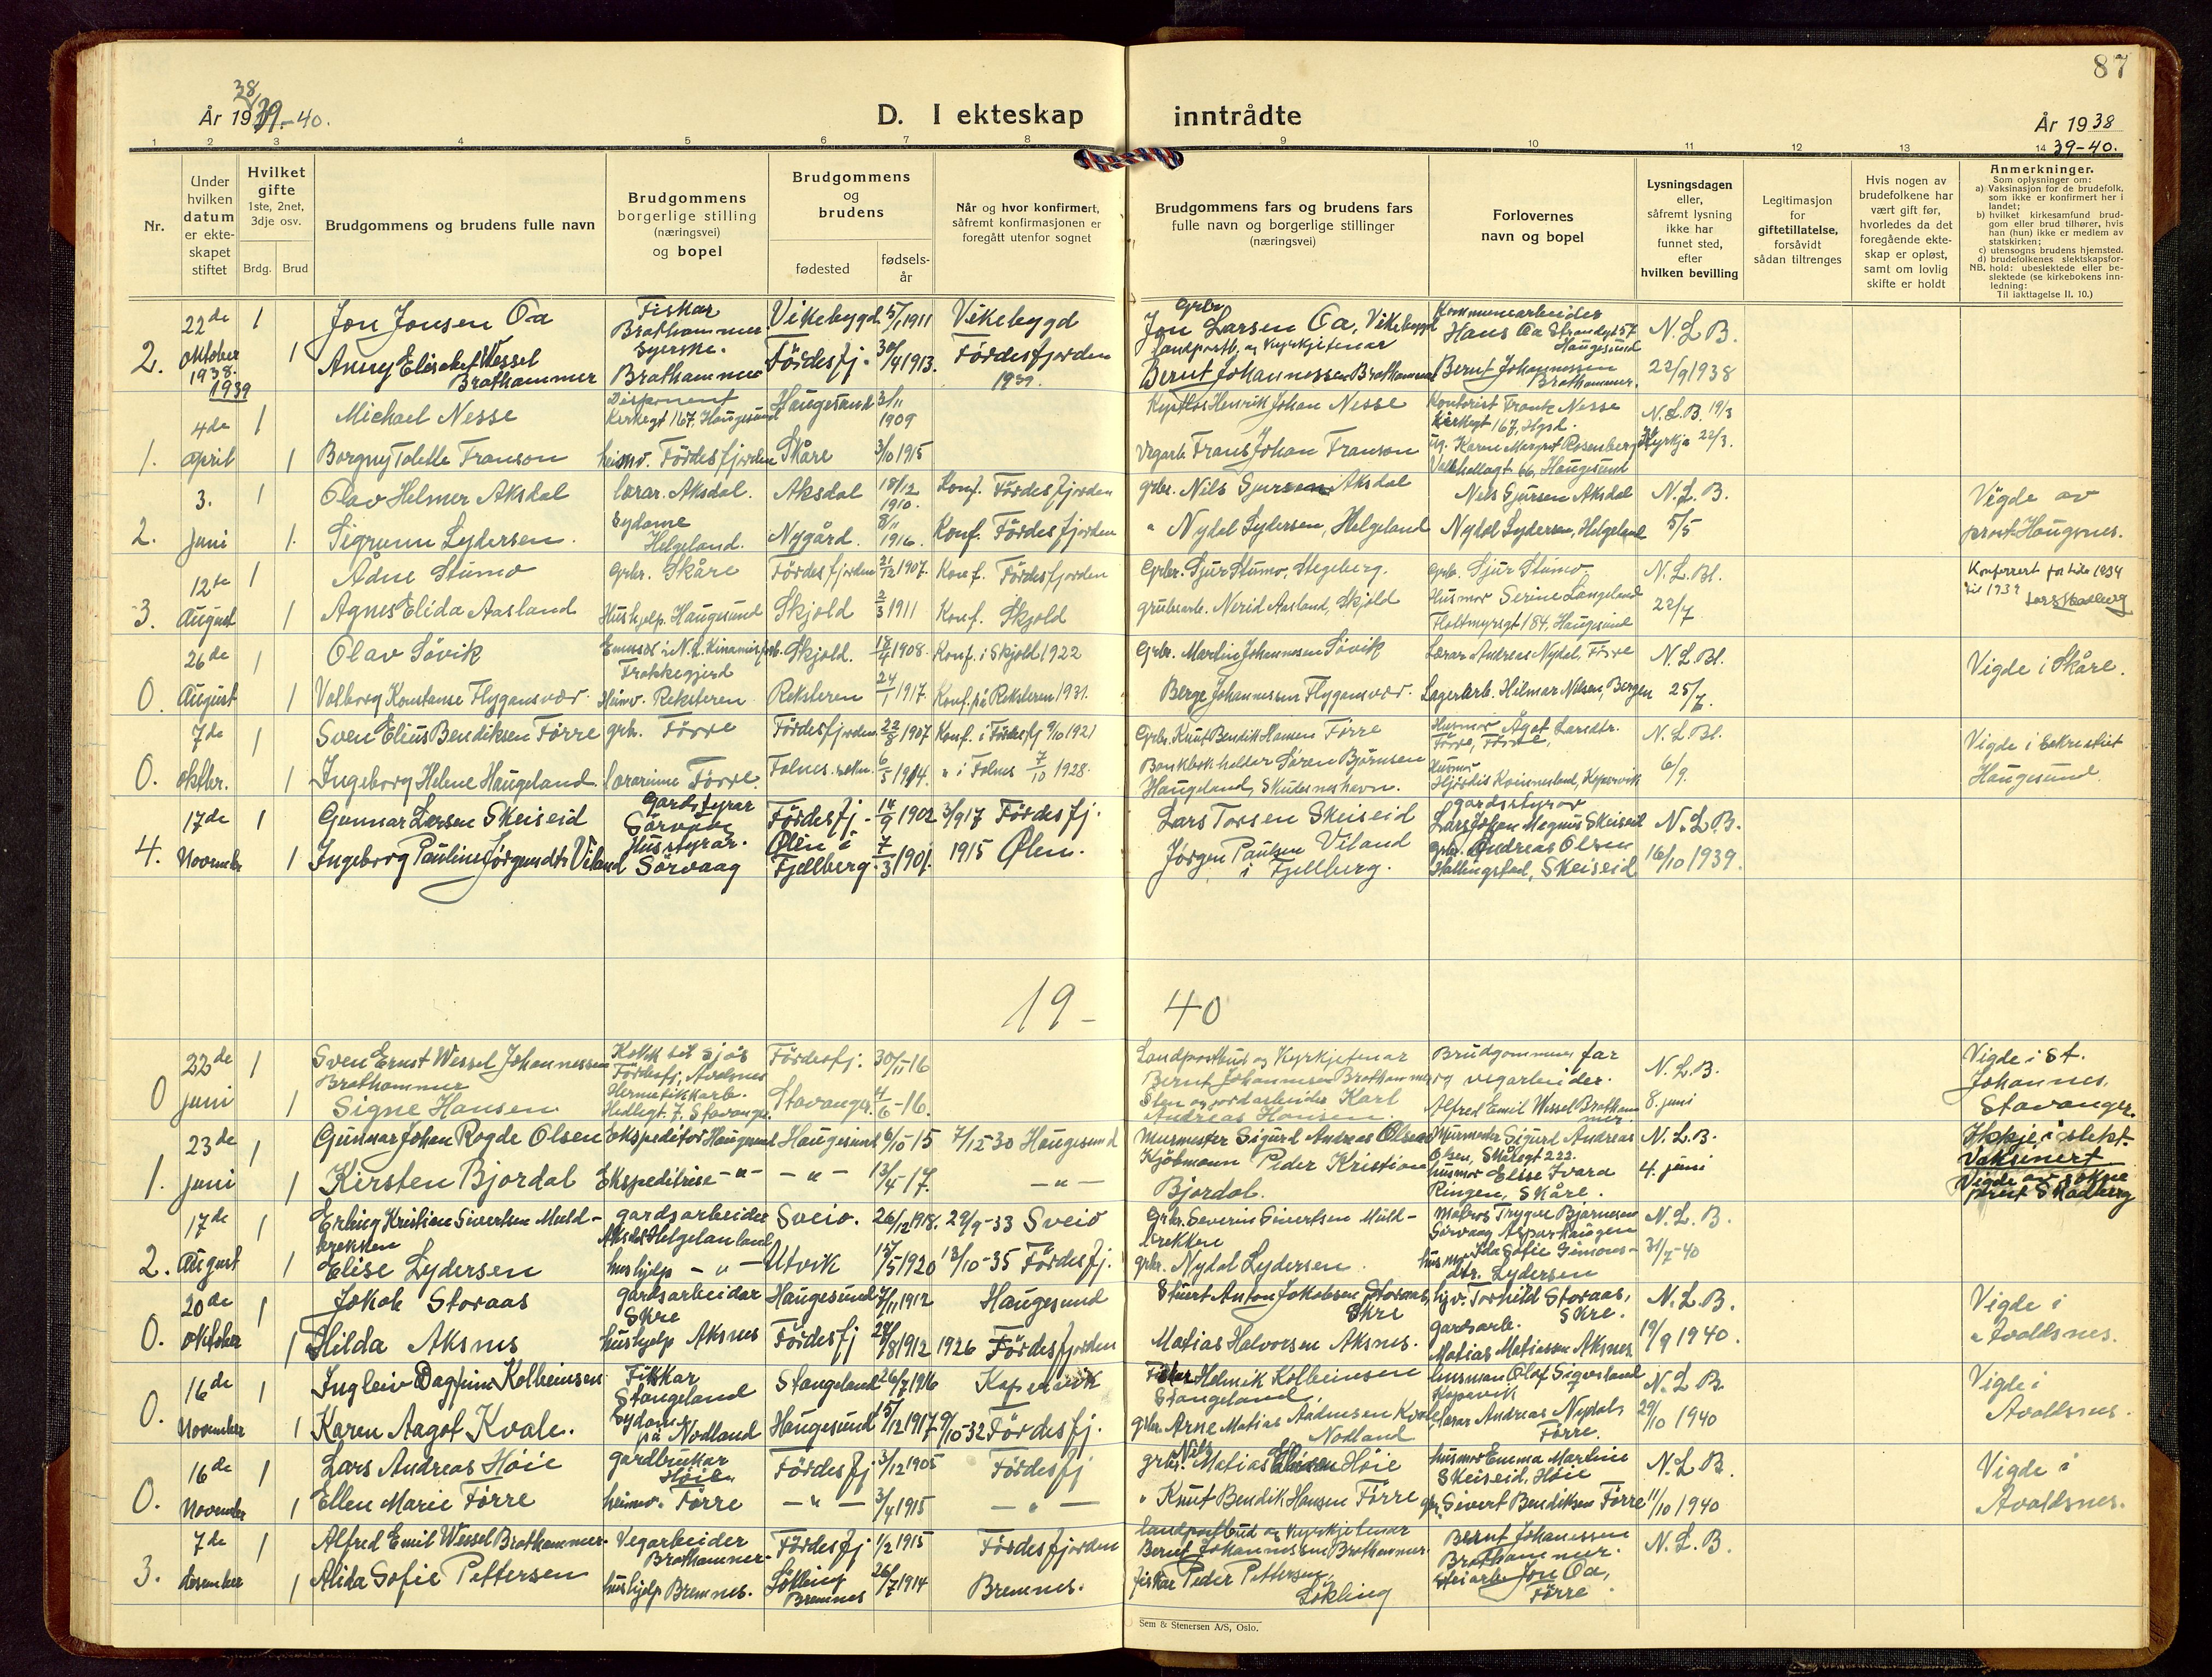 87
38
År 1939.-40.
D. I ekteskap inntrådte
År 1938
39-40.
1 2 3 4 5 6 7 8 9 10 11 12 13 14
Nr.
Under hvilken datum er ekte-skapet stiftet
Hvilket gifte
1ste, 2net, 3dje osv.
Brdg. Brud
Brudgommens og brudens fulle navn
Brudgommens borgerlige stilling (næringsvei) og bopel
Brudgommens og brudens
fødested
fødsels-år
Når og hvor konfirmert, såfremt konfirmasjonen er foregått utenfor sognet
Brudgommens fars og brudens fars fulle navn og borgerlige stillinger (næringsvei)
Forlovernes navn og bopel
Lysningsdagen eller, såfremt lysning ikke har funnet sted, efter hvilken bevilling
Legitimasjon for giftetillatelse, forsåvidt sådan tiltrenges
Hvis nogen av brudefolkene har vært gift før, hvorledes da det foregående ekte-skap er opløst, samt om lovlig skifte er holdt
Anmerkninger.
Som oplysninger om:
a) Vaksinasjon for de brudefolk, som ikke er konfirmert her i landet;
b) hvilket kirkesamfund brud-gom eller brud tilhører, hvis han (hun) ikke er medlem av statskirken;
c) utensogns brudens hjemsted.
d) brudefolkenes slektskapsfor-hold: ubeslektede eller be-slektede (se kirkebokens inn-ledning:
NB.
Til iakttagelse II. 10.)
2. 22de oktober 1938. 1 Jon Jonsen Oa Fiskar Brathammer Vikebygd 5/1 1911 Vikebygd Grbr. Jon Larsen Oa, Vikebygd Kommunearbeider Hans Oa Strandgt 57 Haugesund N.L.B.
1 Brathammer Syerske. Brathammer Fördesfj. 30/4 1913. Fördesfjorden Landpostb. og Kyrkjetenar Bernt Johannessen Brathammer Bernt Johannessen Brathammer. 22/9 1938
1939
1. 4de april 1 Michael Nesse Disponent Kirkegt 167, Haugesund Haugesund 3/11 1909 Henrik Johan Nesse Kontorist Frantz Nesse Kirkegt 167, Hgsd. N.L.B. 19/3
1 Borgny Tolette Franson heimv. Fördesfjorden Skåre 3/10 1915 Vegarb. Frans Johan Franson Karen Margot Rosenberg Valhallagt 66, Haugesund Kyrkja 22/3.
2. 3. juni 1 Olav Helmer Aksdal lærar. Aksdal. Aksdal 18/12 1910. Konf. Fördesfjorden grbr. Nils Sjursen Aksdal Nils Sjursen Aksdal N.L.B. Vigde av prost Haugsnes.
1. Sigrunn Lydersen. Sydame Helgeland. Nygård. 8/11 1916. Konf. Fördesfjorden " Nydal Lydersen, Helgeland Nydal Lydersen, Helgeland 5/5
3. 12te August 1 Adne Stumo grbr. Skåre Fördesfjorden 2/12 1907. Konf. Fördesfjorden Grbr. Sjur Stumo, Stegeberg. Grb. Sjur Stumo. N.L.Bl. Konferert for tida 1934 til 1939
1 Agnes Elida Aasland Hushjelp. Haugesund Skjold 2/3 1911 Konf. Skjold grubearb. Nerid Aasland, Skjold Husmor Serine Langeland Flottmyrsgt 184, Haugesund 22/7
0. 26de August 1 Olav Søvik Skjold. 18/4 1908. Konf. i Skjold 1922 Grbr. Martin Johannesen Søvik Lærar Andreas Nydal, Førre N.L.Bl. Vigde i Skåre.
1 Valborg Konstanse Flygansvær. Heimv. Reksteren Reksteren 24/1 1917. Konf. på Reksteren 1931. Berge Johannessen Flygansvær. Lagerarb. Hilmar Nilsen, Bergen 25/7.
0. 7de oktbr. 1 Sven Elius Bendiksen Førre grb. Førre Fördesfjorden 22/8 1907 Konf. i Fördesfj 9/10 1921 Grbr. Knut Bendik Hansen Førre Husmor Ågot Larsdtr. Førre, Førre, N.L.Bl. Vigde i Sakrestiet Haugesund.
1 Ingeborg Helene Haugeland lærarinne Førre. Falnes. 6/5 1904. " i Falnes 7/10 1928. Bankbokholder Søren Bjørnsen Haugeland, Skudeneshavn. Husmor Hjørdis Kopervik 6/9.
4. 17de November 1 Gunnar Larsen Skeiseid Gardstyrar Sörvaag Fördesfj. 14/9 1902 3/9 17 Fördesfj. Lars Torsen Skeiseid gardsstyrar Lars Johan Magnus Skeiseid N.L.B.
1 Ingeborg Pauline Jørgensdtr Viland Husstyrar. Sörvaag Ølen i Fjellberg. 7/3 1901. 1915 Ølen. Jørgen Paulsen Viland i Fjellberg. grbr. Andreas Olsen Hallingstad, Skeiseid 16/10 1939.
19 - 40
0 22de juni 1 Sven Ernst Wessel Johannessen Brathammer Kokk til sjøs Fördesfj, Avaldsnes Fördesfj. 30/11-16 Landpostbud og Kyrkjetenar Bernt Johannesen Brathammer Brudgommens far og vegarbeider. N.L.B. Vigde i St. Johannes, Stavanger.
1 Signe Hansen. Hermetikkarb. Hedlegt. 7. Stavanger Stavanger. 4/6-16. Sten og jordarbeider Karl Andreas Hansen. Alfred Emil Wessel Brathammer. 8. juni
1. 23de juni 1 Gunnar Johan Rogde Olsen Ekspeditør Haugesund Haugesund 6/10-15 7/12 30 Haugesund Murmester Sigurd Andreas Olsen Murmester Sigurd Andreas Olsen, Skåregt 222. N.L.B. Ikkje i slekt. Vaksinert Vigde av sokneprest Skadberg
1 Kirsten Bjordal Ekspeditrise -"- -"- 13/4-17. -"- Kjöbmann Peder Kristian Bjordal. husmor Elise Ivara Ringen, Skåre. 4. juni
2. 17de August 1 Erling Kristian Sivertsen Muldbrekken gardsarbeider Aksdal Helgeland Sveio. 26/12 1918. 29/9-33 Sveio Grbr. Severin Sivertsen Muldbrekken Matros Trygve Bjarnesen Sörvaag Asparhaugen N.L.B.
1 Elise Lydersen hushjelp -"- Utvik 15/5 1920 13/10-35 Fördesfj. grbr. Nydal Lydersen. husmor Ida Sofie Simons-dtr. Lydersen 31/7-40
0. 20de oktober 1 Jakob Storaas gardsarbeider Skre Haugesund 7/11 1912 Haugesund Stuert Anton Jakobsen Storaas, Skre hjv. Torhild Storaas, Skre. N.L.B. Vigde i Avaldsnes.
1 Hilda Aksnes hushjelp Aksnes Fördesfj 29/8 1912 1926 Fördesfjorden Matias Halvorsen Aksnes. gardsarb. Matias Matiassen Aksnes. 19/9 1940.
0. 16de November 1 Ingleiv Dagfinn Kolbeinsen Fiskar Stangeland Stangeland 26/7 1916 Kopervik Fiskar Helmik Kolbeinsen Stangeland. husmann Olaf Kopervik N.L.B. Vigde i Avaldsnes.
1 Karen Aagot Kvale. Sydame på Nodland Haugesund 15/12 1917. 9/10-32 Fördesfj. grbr. Arne Matias Aadnesen Kvale Nodland lærar Andreas Nydal, Førre. 29/10 1940
0. 16de November 1 Lars Andreas Höie gardbrukar Höie. Fördesfj 3/12 1905 Fördesfj grbr. Nils Matias Höie husmor Emma Martine Skeiseid, Höie N.L.B. Vigde i Avaldsnes.
1 Ellen Marie Førre heimv. Førre -"- 3/4 1915 -"- " Knut Bendik Hansen Førre gbr. Sivert Bendiksen Førre 11/10 1940
3. 7de desember 1 Alfred Emil Wessel Brathammer. Vegarbeider Brathammer. Fördesfj 1/2 1915 Fördesfjorden landpostbud og kyrkjetenar Bernt Johannessen Brathammer Bernt Johanessen Brathammer. N.L.B.
1 Alida Sofie Pettersen hushjelp Bremnes. Lökling Bremnes 26/7 1914 Bremnes. fiskar Peder Pettersen, Lökling Jon Oa, Førre.
Sem & Stenersen A/S, Oslo.